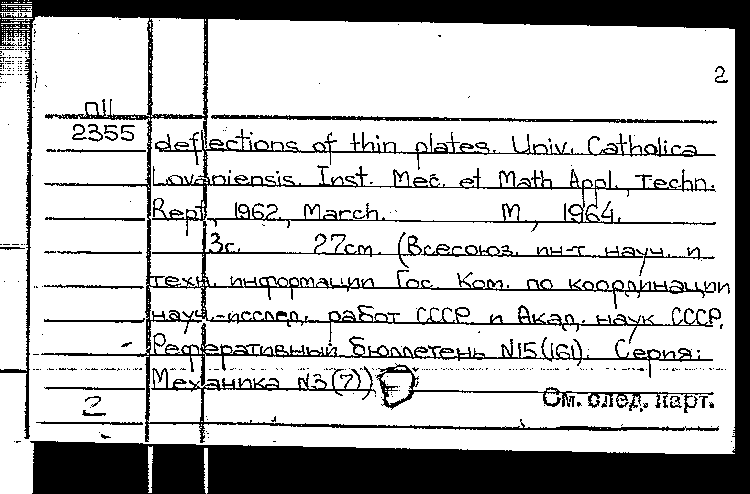 2
П11
2355
deflections of thin plates. Univ. Catholica
Lovaniensis. Inst. Mec. et Math Appl., Techn.
Rept, 1962, March. М., 1964.
3с. 27см. (Всесоюз. ин-т науч. и
техн. информации Гос. Ком. по координации
науч.-исслед. работ СССР и Акад. наук СССР.
Реферативный бюллетень N15(161). Серия:
Механика N3(7))
2
См. след. карт.